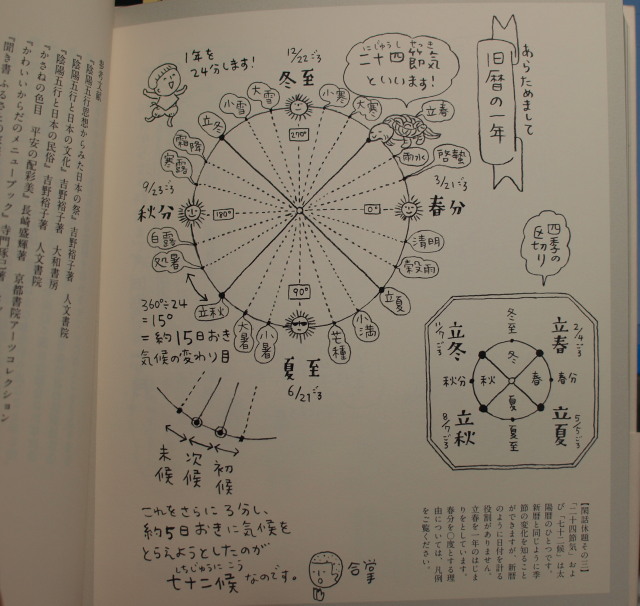 あらためまして
旧暦の一年
にじゅうしせっき
二十四節気
といいます!
1年を
24分します!
12/22ごろ
冬至
小寒
大寒
立春
雨水
啓蟄
3/21ごろ
春分
清明
穀雨
立夏
小満
芒種
夏至
6/21ごろ
小暑
大暑
立秋
処暑
白露
秋分
9/23ごろ
寒露
霜降
立冬
小雪
大雪
270°
0°
90°
180°
360°÷24
=15°
=約15日おき
気候の変わり目
初候
次候
末候
これをさらに3分し、
約5日おきに気候を
とらえようとしたのが
しちじゅうにこう
七十二候なのです。
合掌
四季の
区切り
立春
2/4ごろ
春分
立夏
5/5ごろ
夏至
立秋
8/7ごろ
秋分
立冬
11/7ごろ
冬至
冬
春
夏
秋
【閑話休題 その三】
「二十四節気」およ
び「七十二候」は太
陽暦のひとつです。
新暦と同じように季
節の変化を知ること
ができますが、新暦
のように日付を計る
役割がありません。
立春を一年のはじま
りをとしています。
春分を〇度とする理
由については、凡例
をご覧ください。
参考文献
『陰陽五行思想からみた日本の祭』吉野裕子著 人文書院
『陰陽五行と日本の文化』吉野裕子著 大和書房
『陰陽五行と日本の民俗』吉野裕子著 人文書院
『かさねの色目 平安の配彩美』長崎盛輝著 京都書院アーツコレクション
『かわいいからだのメニューブック』寺門琢己著
『聞き書 ふるさとの